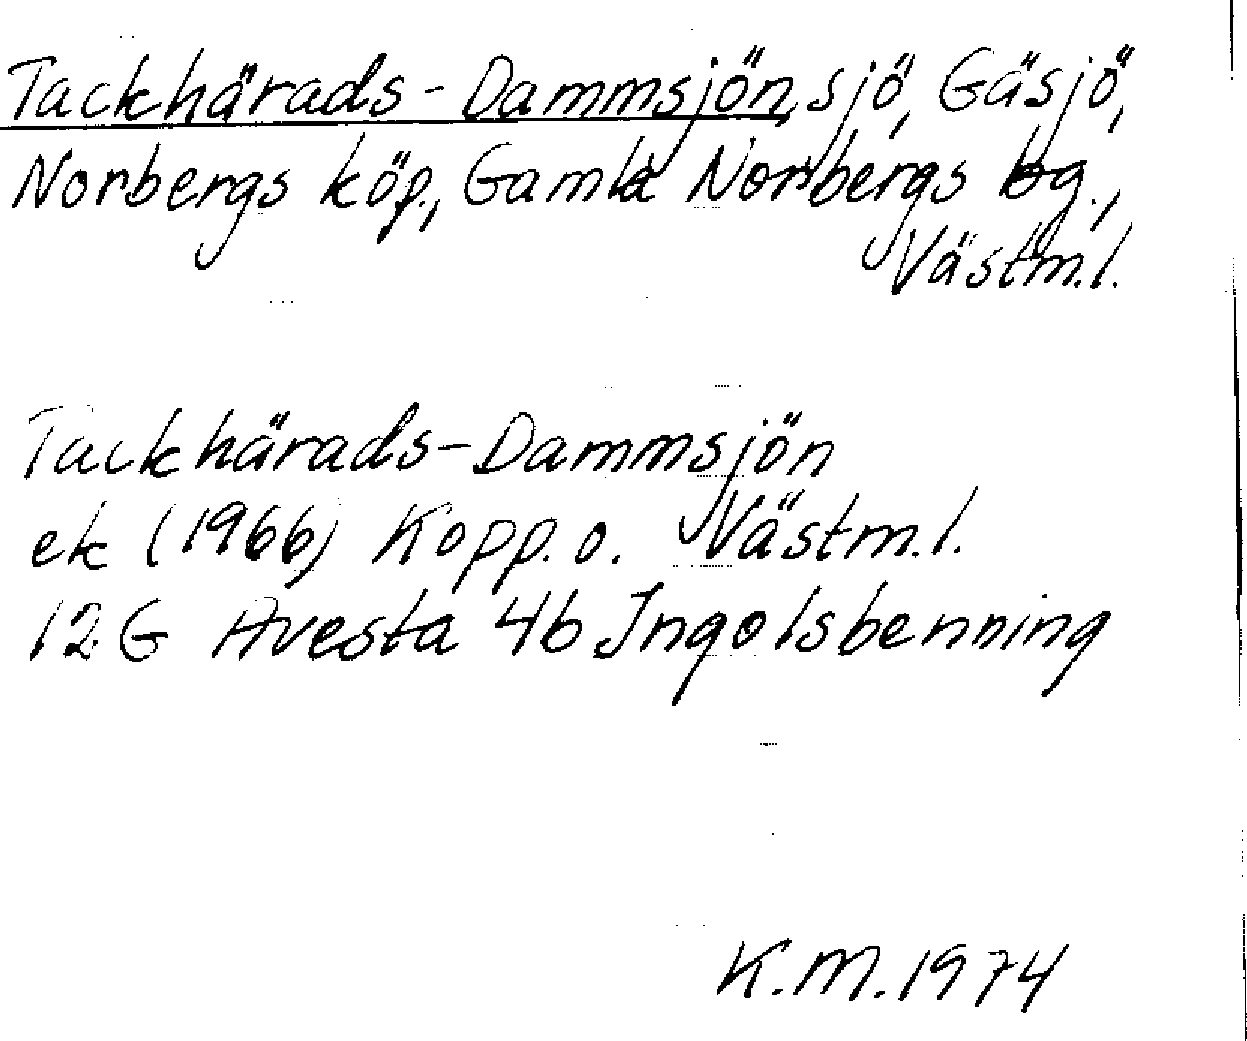 Tackhärads-Dammsjön, sjö, Gäsjö,
Norbergs köp., Gamla Norbergs bg.,
Västm.l.
Tackhärads-Dammsjön
ek (1966) Kopp. o. Västm.l.
12 G Avesta 4b Ingolsbenning
K.M. 1974